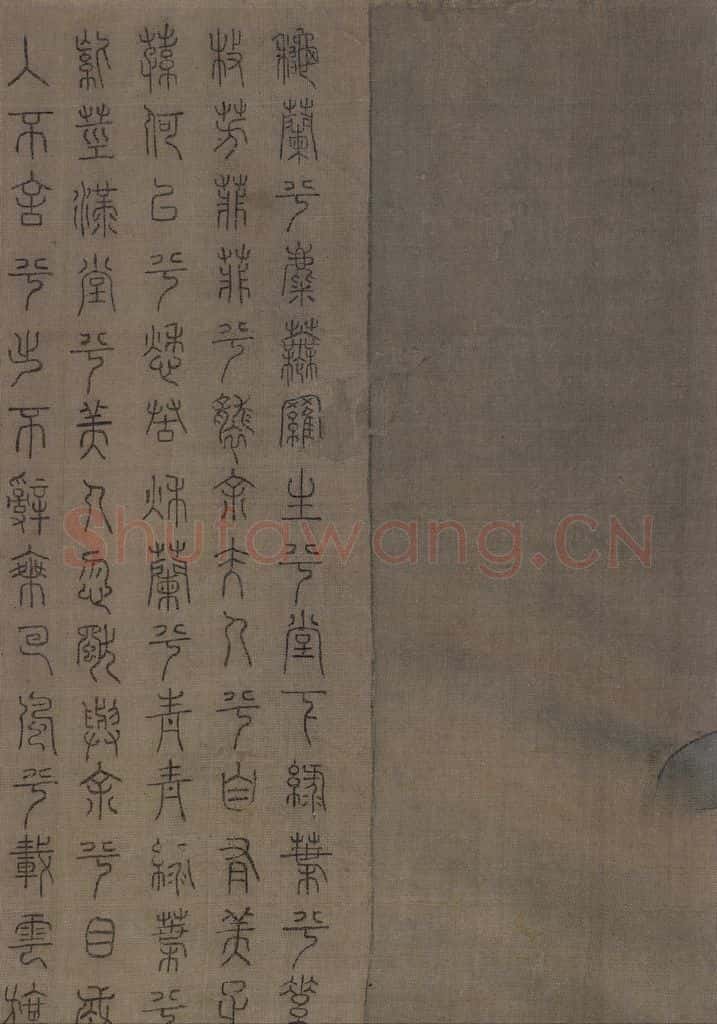 秋蘭兮麋蕪羅生兮堂下綠葉兮素
枝芳菲菲兮襲余夫人兮自有美子
蓀何以兮愁苦秋蘭兮青青綠葉兮
紫莖滿堂兮美人忽獨與余兮目成
入不言兮出不辭乘回風兮載雲旗
Shufawang.CN